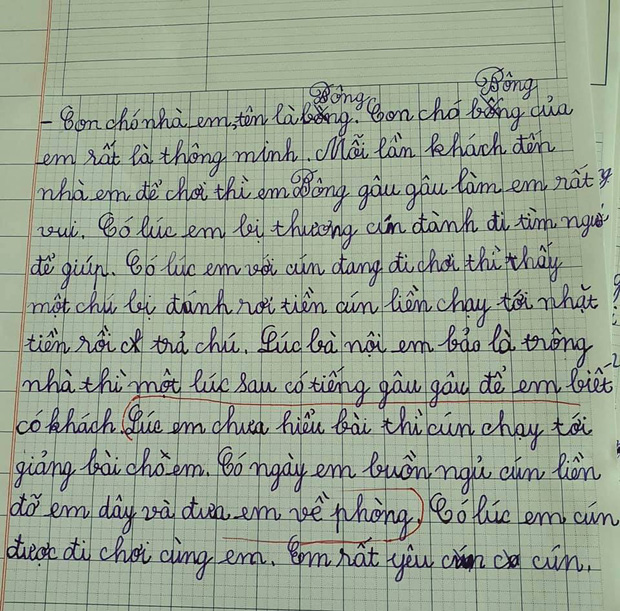 Bông Bông
- Con chó nhà em, tên là bông. Con chó bông của
em rất là thông minh. Mỗi lần khách đến
nhà em để chơi thì em Bông gâu gâu làm em rất
vui. Có lúc em bị thương cún đành đi tìm ngườ
để giúp. Có lúc em với cún đang đi chơi thì thấy
một chú bị đánh rơi tiền cún liền chạy tới nhặt
tiền rồi trả chú. Lúc bà nội em bảo là trông
nhà thì một lúc sau có tiếng gâu gâu để em biết
có khách. Lúc em chưa hiểu bài thì cún chạy tới
giảng bài chờ em. Có ngày em buồn ngủ cún liền
đỡ em dây và đưa em về phòng. Có lúc em cún
được đi chơi cùng em. Em rất yêu cún.